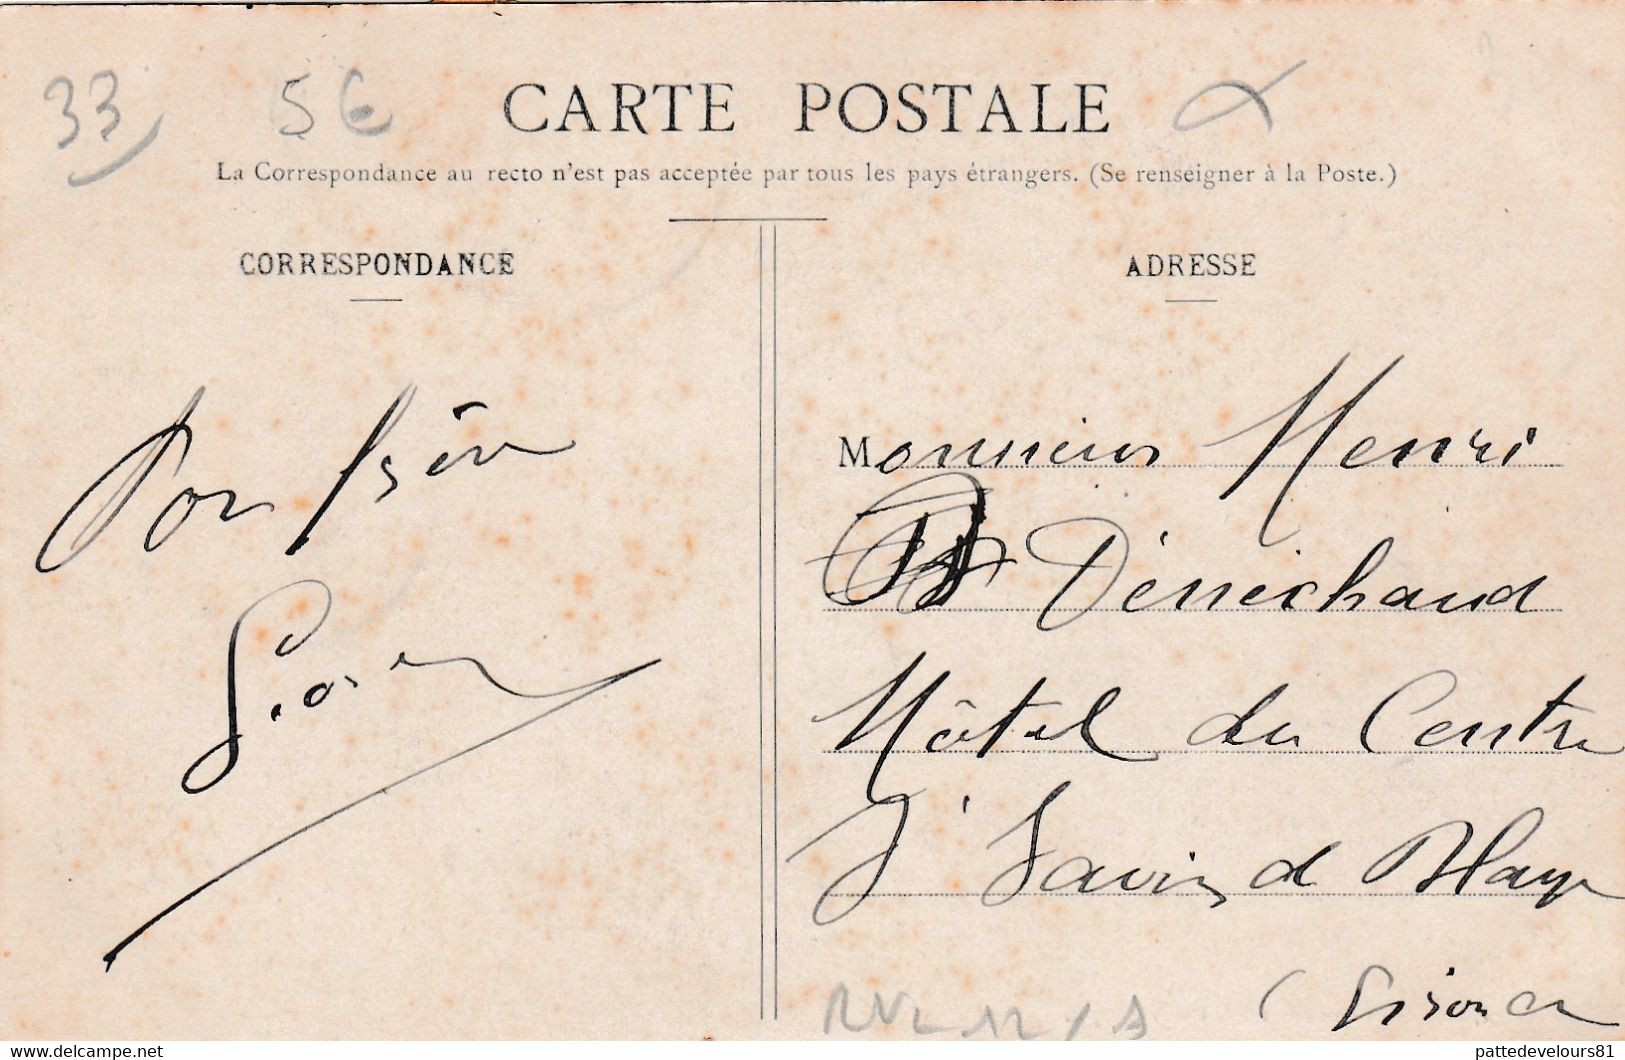 33 5€ CARTE POSTALE
La Correspondance au recto n'est pas acceptée par tous les pays étrangers. (Se renseigner à la Poste.)
CORRESPONDANCE
Ton frère
ADRESSE
Monsieur Henri
Dénéchaud
Hôtel du Centre
St Savin de Blaye
(Gironde
pattedevelours81
www.delcampe.net